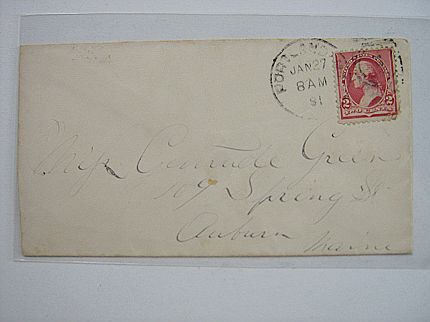 PORTLAND
JAN 27
8 AM
91
2 2
TWO CENTS
Miss Green
109 Spring St
Auburn
Maine